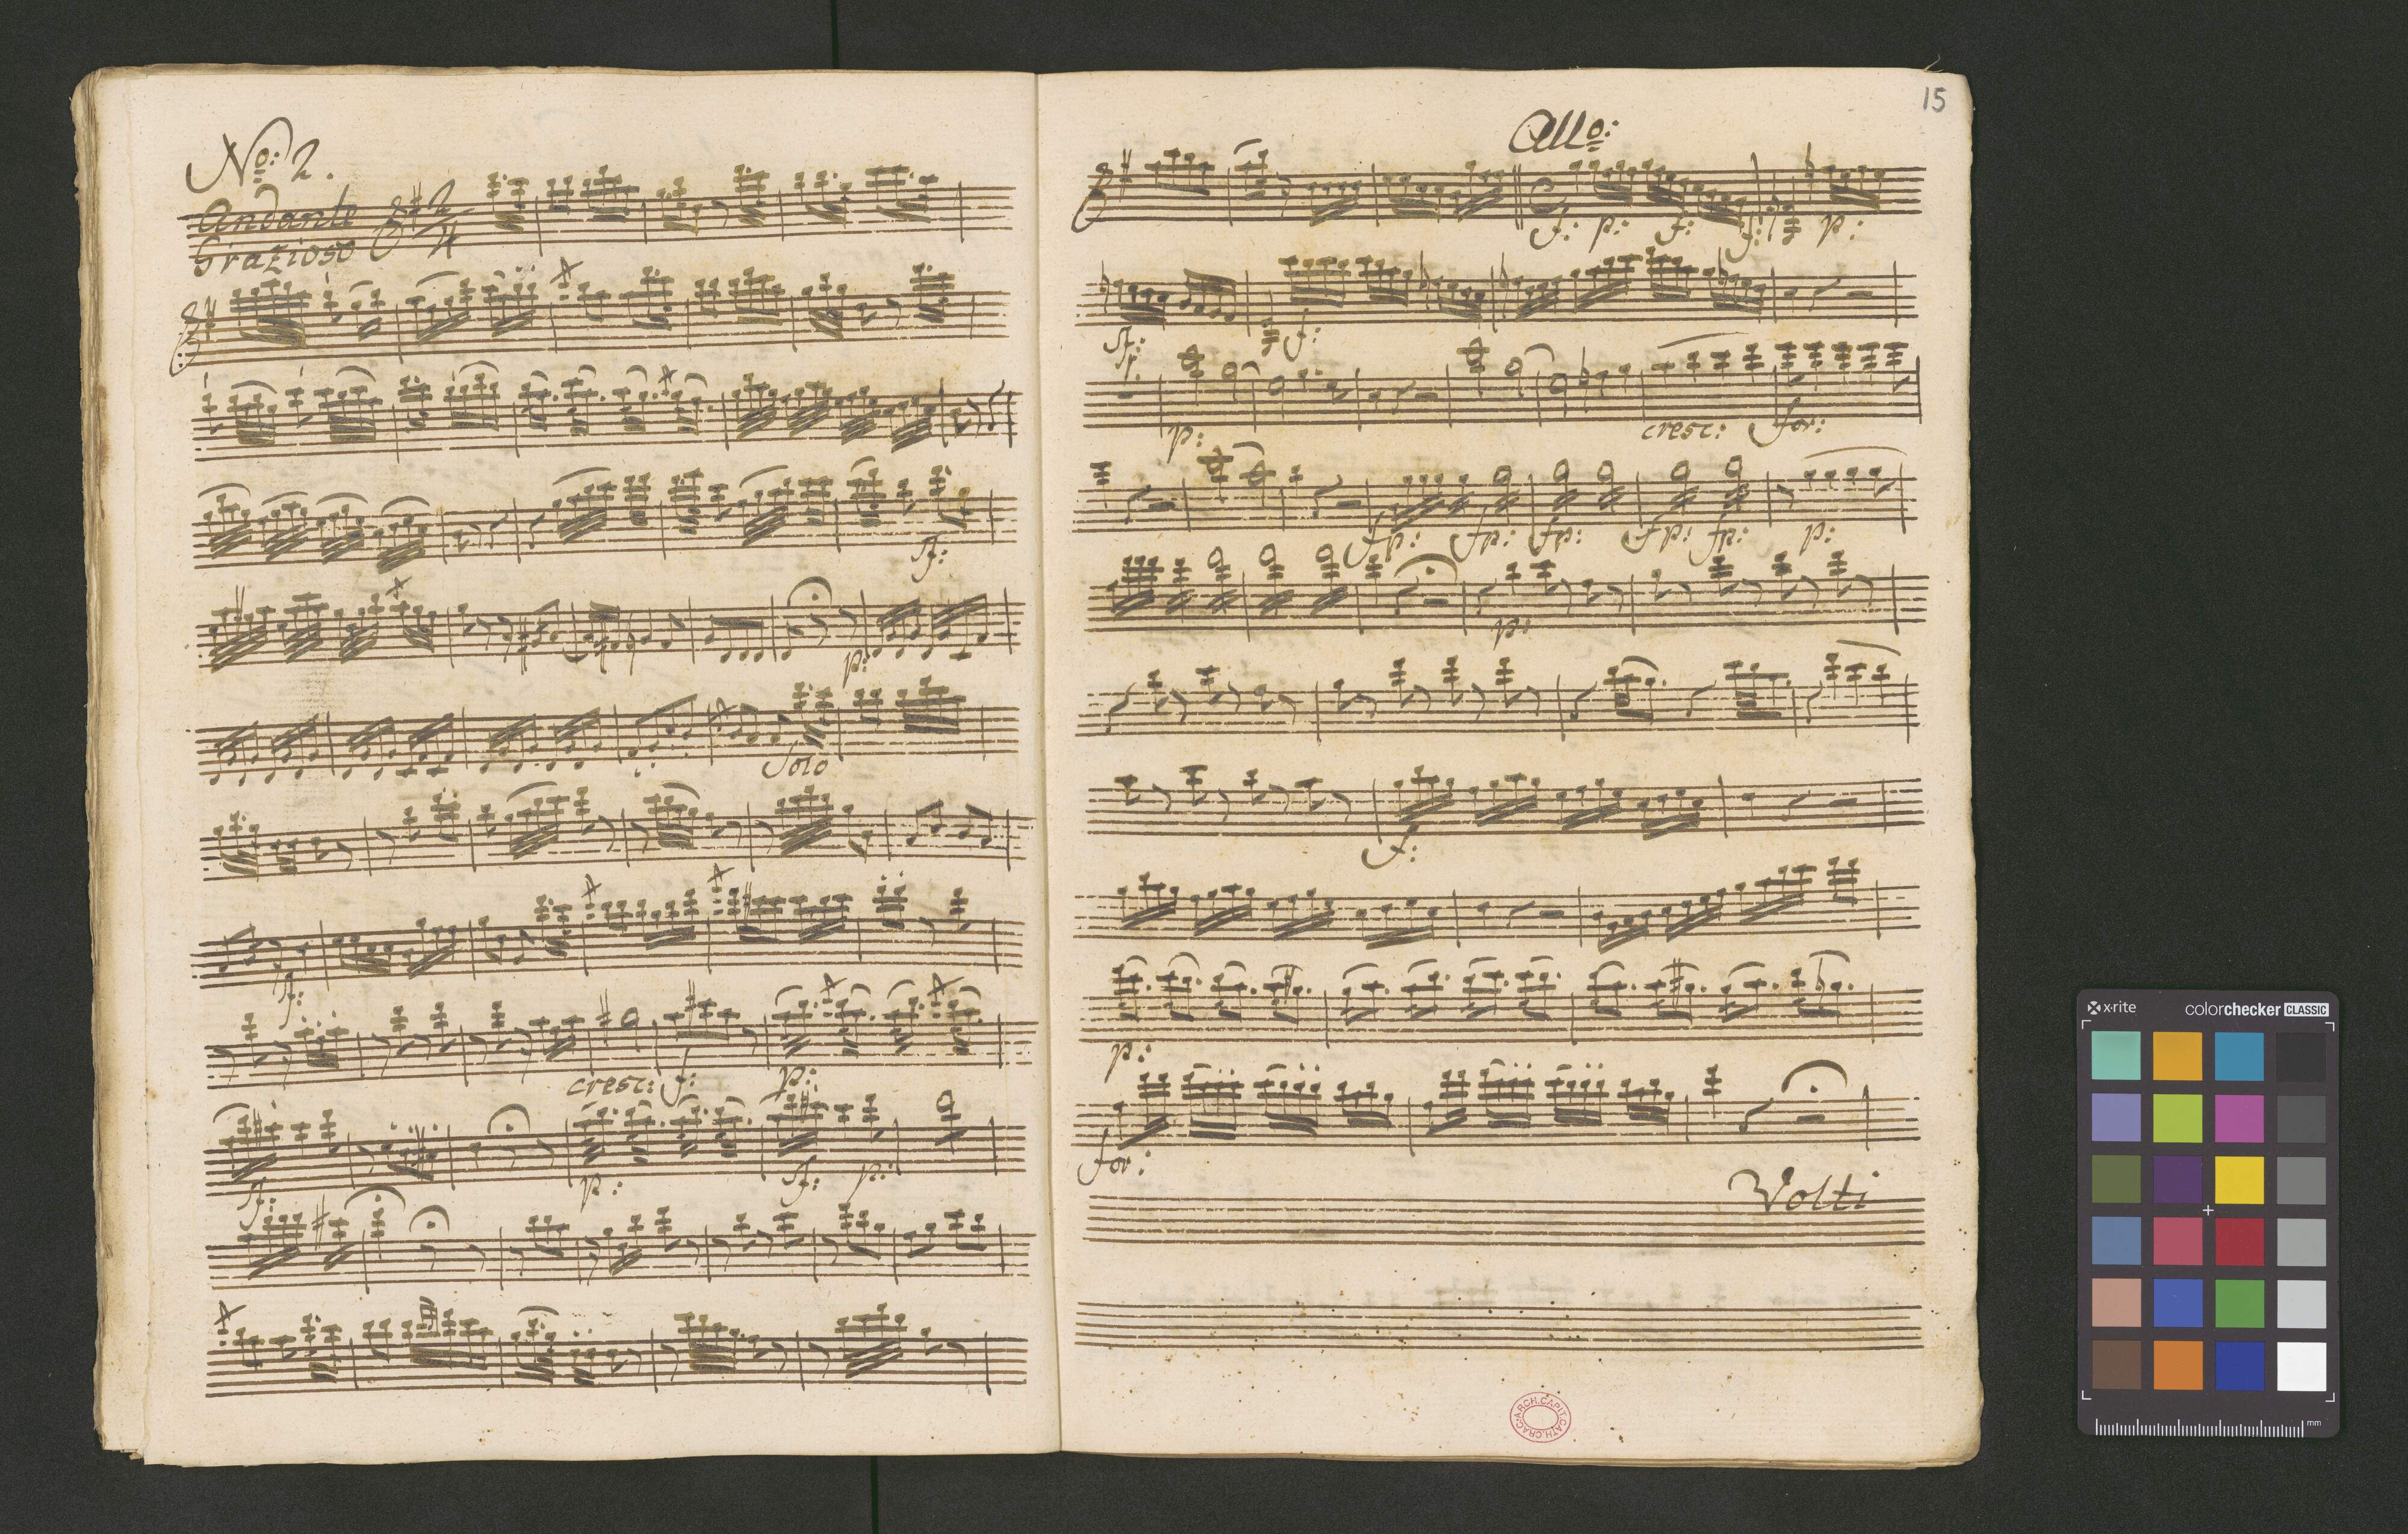 No: 2.
Andante
Grazioso
2
4
sf:
p:
Solo
sf:
cresc: f:
p:
sf:
p:
sf: p:
15
Allo:
f: p: f: f: p:
sf:
p:
f:
p:
cresc: for:
fp: fp: fp: fp: fp: p:
p:
f:
p:
for:
Volti
ARCH.CAPIT.CATH.CRAC
x-rite
colorchecker CLASSIC
mm